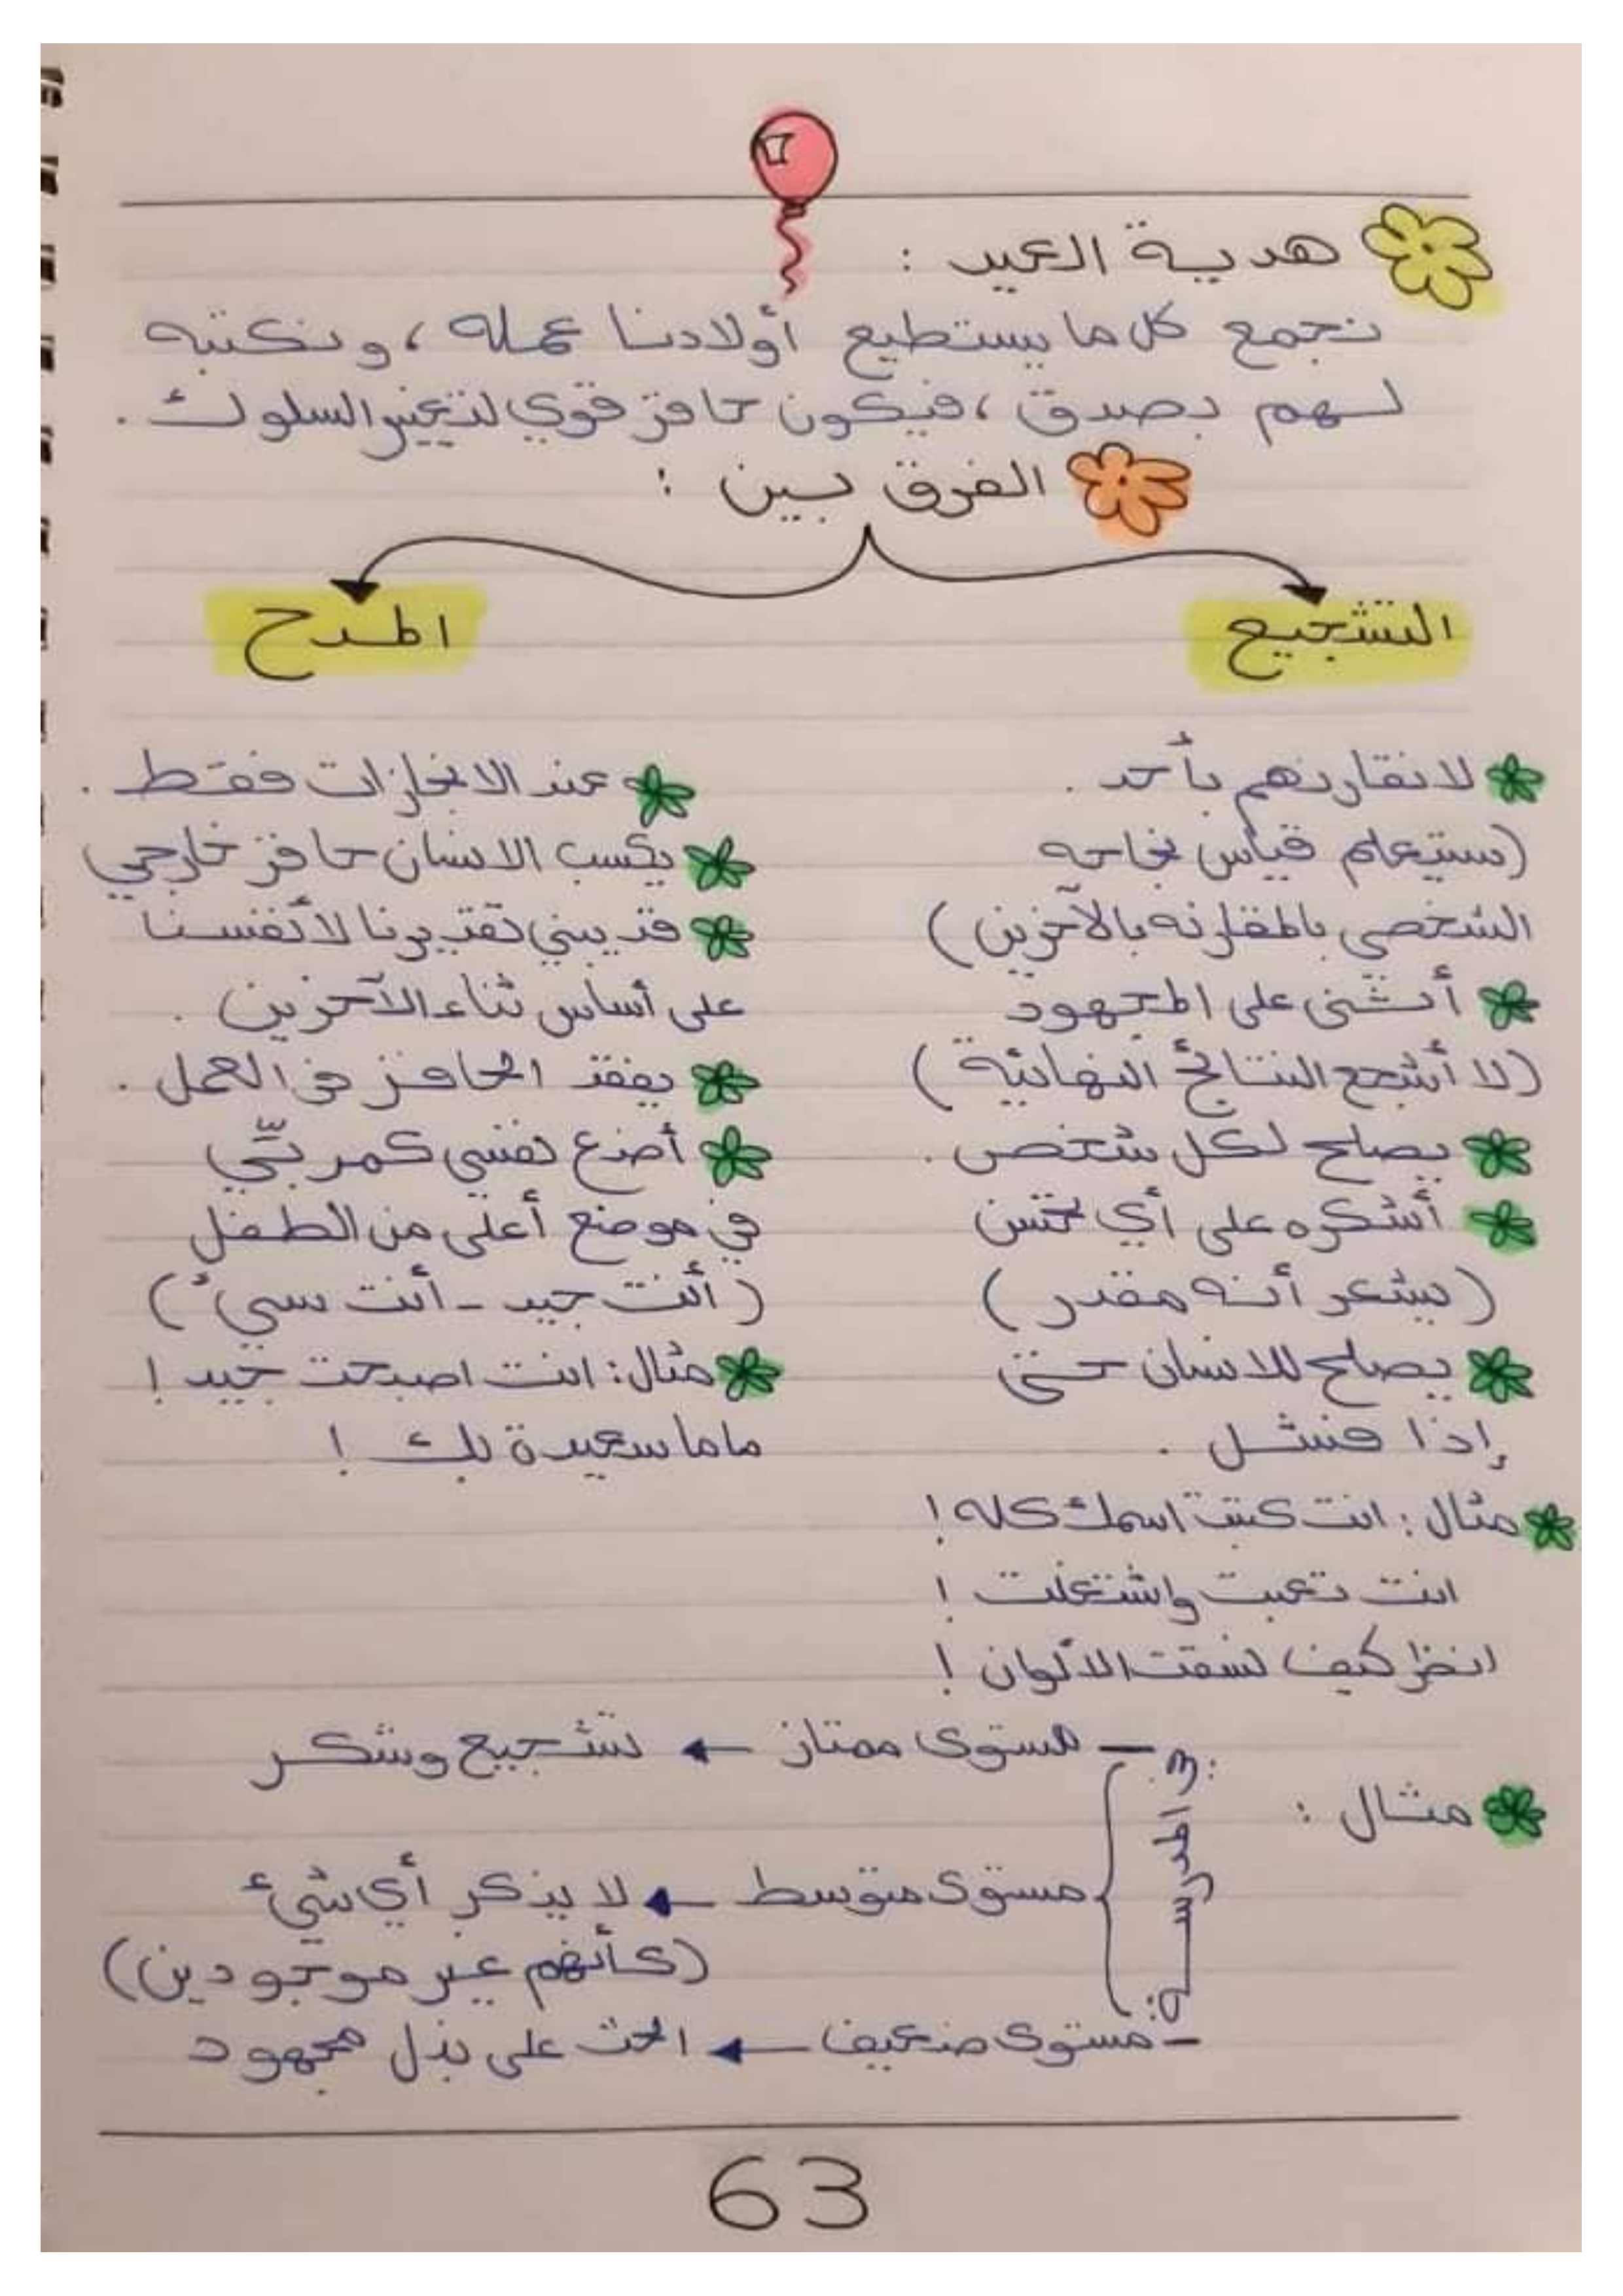 هدية العيد :
نجمع كل ما يستطيع أولادنا عمله ، ونكتبه
لهم بصدق ، فيكون حافز قوي لتغيير السلوك .
الفرق بين :
التشجيع
لا نقارنهم بأحد .
(سيتعلم قياس نجاحه
الشخصي بالمقارنه بالآخرين)
أثني على المجهود
(لا أشجع النتائج النهائية)
يصلح لكل شخص .
أشكره على أي تحسن
(يشعر أنه مقدر)
يصلح للانسان حتى
إذا فشل .
مثال : انت كتبت اسمك كله !
انت تعبت واشتغلت !
انظر كيف نسقت الألوان !
المدح
عند الانجازات فقط .
يكسب الانسان حافز خارجي
قد يبني تقديرنا لأنفسنا
على أساس ثناء الآخرين .
يفقد الحافز في العمل .
أضع نفسي كمربّي
في موضع أعلى من الطفل
(أنت جيد - أنت سيء)
مثال : انت اصبحت جيد !
ماما سعيدة بك !
مثال :
في المدرسة
- مستوى ممتاز ← تشجيع وشكر
مستوى متوسط ← لا يذكر أي شيء
(كأنهم غير موجودين)
- مستوى ضعيف ← الحث على بذل مجهود
63